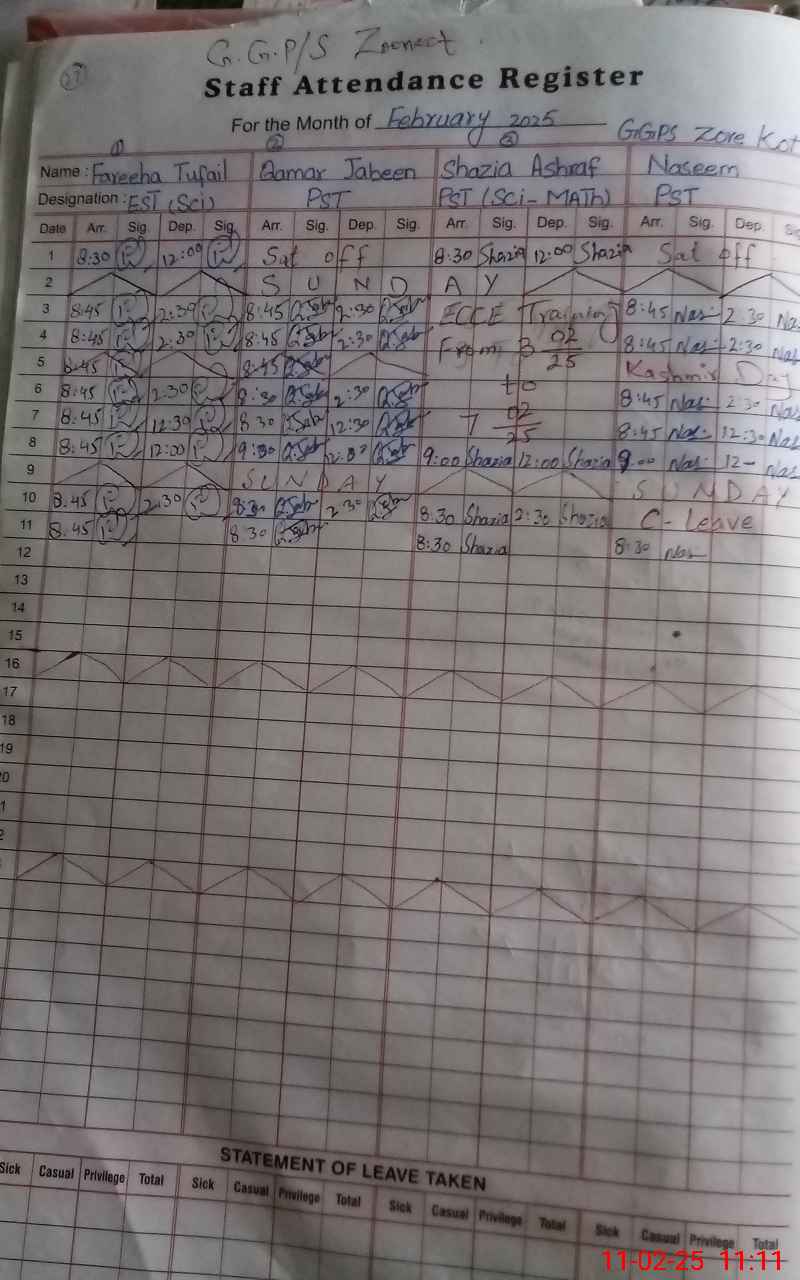 27
G.G.P/S Zoonect.
Staff Attendance Register
For the Month of February 2025
GGPS Zore Kot
① ② ③
Name: Fareeha Tufail Qamar Jabeen Shazia Ashraf Naseem
Designation: EST (Sci) PST PST (Sci-MATH) PST
Date Arr. Sig. Dep. Sig. Arr. Sig. Dep. Sig. Arr. Sig. Dep. Sig. Arr. Sig. Dep. Sig
1 8:30 12:00 Sat off 8:30 Shazia 12:00 Shazia Sat off
2 S U N D A Y
3 8:45 2:30 8:45 2:30 ECCE Training 8:45 Nas: 2.30 Nas
4 8:45 2:30 8:45 2:30 From 3 02/25 8:45 Nas: 2:30 Nas
5 8:45 8:45 Kashmir Day
6 8:45 2:30 8:30 2:30 to 8:45 Nas: 2:30 Nas
7 8:45 12:30 8:30 12:30 7 02/25 8:45 Nas: 12:30 Nas
8 8:45 12:00 9:00 Shazia 12:00 Shazia 9.00 Nas: 12- Nas
9 S U N D A Y S U N D A Y
10 8.45 2:30 8:30 2:30 8:30 Shazia 2:30 Shazia C-Leave
11 8.45 8:30 8:30 Shazia 8:30 Nas
12
13
14
15
16
17
18
19
20
1
2
STATEMENT OF LEAVE TAKEN
Sick Casual Privilege Total Sick Casual Privilege Total Sick Casual Privilege Total Sick Casual Privilege Total
11-02-25 11:11